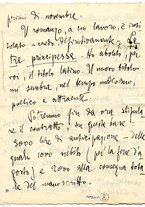 primi di novembre.
Il romanzo, a cui lavoro, è così
intitolato - credo definitivamente - Le
tre principesse. Ho abolito, per-
ciò, il titolo latino. Il nuovo titolo
mi sembra, nel tempo medesimo,
poetico e attraente.
Potremmo fin da ora stipula-
re il contratto, su queste basi:
3000 lire di anticipazione - delle
quali 1000 subito (per la fine d'a-
gosto) e 2000 alla consegna tota-
le del manoscritto.